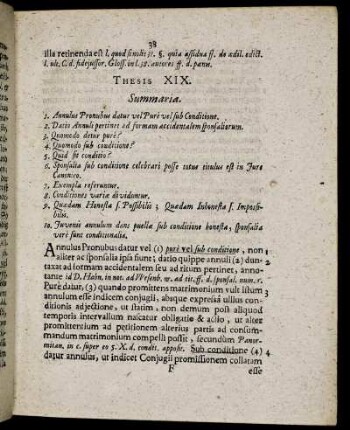 38
illa retinenda est l. quod si nolit 31. §. quia assidua ff. de ædil. edict.
l. ult. C. d. fidejussor. Gloss. in l. 38. autores ff. d. pœnis.
THESIS XIX.
Summaria.
1. Annulus Pronubus datur vel Purè vel sub Conditione.
2. Datio Annuli pertinet ad formam accidentalem sponsaliorum.
3. Quomodo detur purè?
4. Quomodo sub conditione?
5. Quid sit conditio?
6. Sponsalia sub conditione celebrari posse totus titulus est in Jure
Canonico.
7. Exempla referuntur.
8. Conditiones variæ dividuntur.
9. Quædam Honesta s. Possibilis; Quædam Inhonesta s. Impossi-
bilis.
10. Juvenis annulum dans puellæ sub conditione honesta, sponsalia
verè sunt conditionalia.
Annulus Pronubus datur vel (1) purè vel sub conditione, non 1
aliter ac sponsalia ipsa fiunt; datio quippe annuli (2) dun- 2
taxat ad formam accidentalem seu ad ritum pertinet, anno-
tante id D. Hahn. in not. ad Wesenb. ad tit. ff. d. sponsal. num. 1.
Purè datur, (3) quando promittens matrimonium vult istum 3
annulum esse indicem conjugii, absque expressa ullius con-
ditionis adjectione, ut statim, non demum post aliquod
temporis intervallum nascatur obligatio & actio, ut alter
promittentium ad petitionem alterius partis ad consum-
mandum matrimonium compelli possit, secundum Panor-
mitan. in c. super eo 5. X. d. condit. apposit. Sub conditione (4) 4
datur annulus, ut indicet Conjugii promissionem collatam
F esse